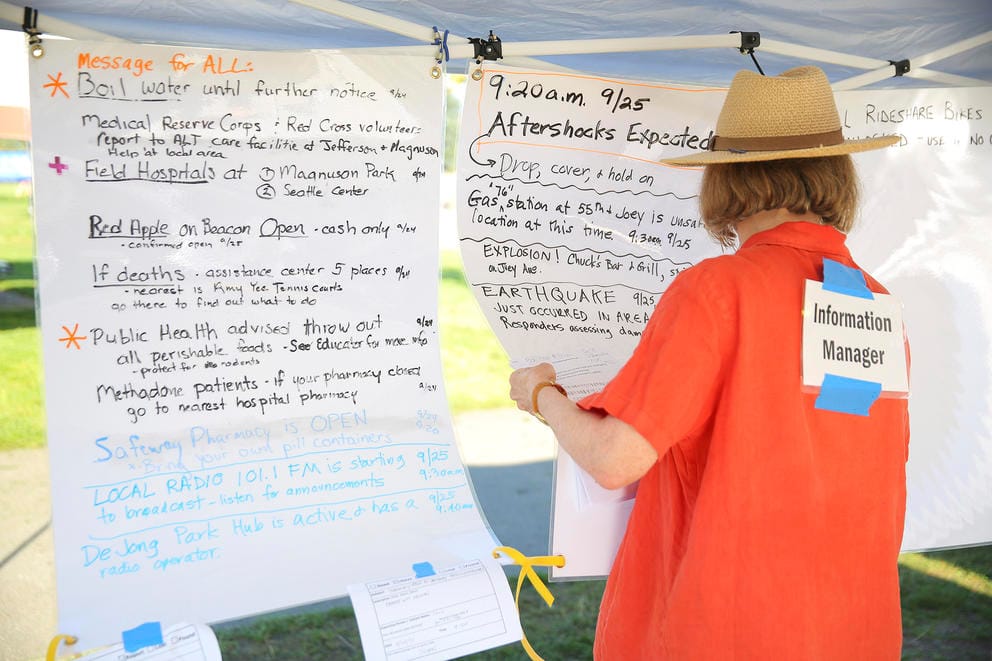 Message for ALL:
* Boil water until further notice 9/24
Medical Reserve Corps & Red Cross volunteers
report to ALT care facilitie at Jefferson & Magnuson
Help at local area
+ Field Hospitals at ① Magnuson Park 9/24
② Seattle Center
Red Apple on Beacon Open - cash only 9/24
- confirmed open 9/25
If deaths - assistance center 5 places 9/24
- nearest is Amy Yee Tennis Courts
go there to find out what to do
* Public Health advised throw out 9/24
all perishable foods - See Educator for more info
- protect for rodents
Methadone patients - if your pharmacy closed 9/24
go to nearest hospital pharmacy
Safeway Pharmacy is OPEN 9/24
Bring your own pill containers 9:20
LOCAL RADIO 101.1 FM is starting 9/25
to broadcast - listen for announcements 9:30am
DeJong Park Hub is active & has a 9/25
radio operator. 9:40am
9:20 a.m. 9/25
Aftershocks Expected
Drop, cover, & hold on
Gas "76" station at 55th & Joey is unsafe
location at this time. 9:30am 9/25
EXPLOSION! Chuck's Bar & Grill,
on Joey Ave.
EARTHQUAKE 9/25
JUST OCCURRED IN AREA
Responders assessing
RIDESHARE BIKES
USE
Information
Manager